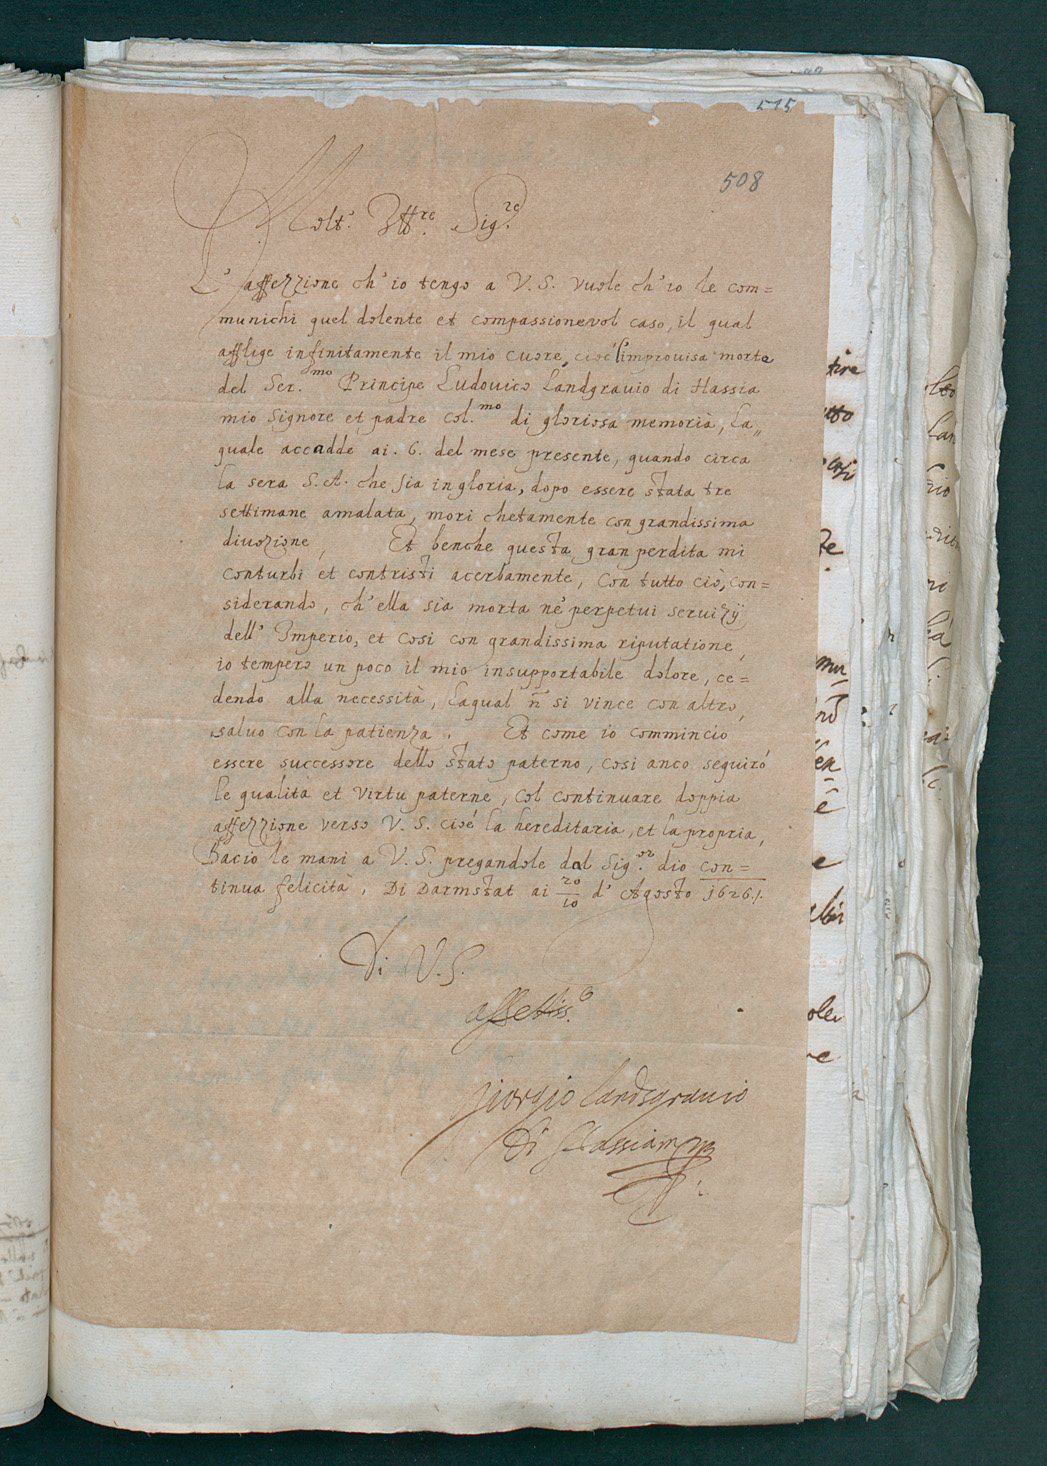 515
508
Molt.' Ill.re Sig.re
L' affezzione ch' io tengo a V. S. vuole ch' io le com=
munichi quel dolente et compassionevol caso, il qual
afflige infinitamente il mio cuore, cioé l'improuisa morte
del Ser.mo Principe Ludouico Landgrauio di Hassia
mio Signore et padre Col.mo di gloriosa memoria, La„
quale accadde ai. 6. del mese presente, quando circa
la sera S. A. che sia in gloria, dopo essere stata tre
settimane amalata, mori chetamente con grandissima
diuozione, Et benche questa gran perdita mi
conturbi et contristi acerbamente, con tutto ciò, con=
siderando, ch' ella sia morta né perpetui seruizÿ
dell' Imperio, et cosi con grandissima riputatione,
io tempero un poco il mio insupportabile dolore, ce=
dendo alla necessità, laqual ñ si vince con altro,
saluo con la patienza. Et come io commincio
essere successore dello stato paterno, cosi anco seguiró
le qualità et virtu paterne, col continuare doppia
affezzione verso V. S. cioé la hereditaria, et la propria,
Bacio le mani a V. S. pregandole dal Sig.or dio con=
tinua felicità, Di Darmstat ai 20/10 d' Agosto 1626./.
Di V. S.
affettiss.o
Giorgio Landsgrauio
di Hassia
tire
utto
cosi
mu
ole